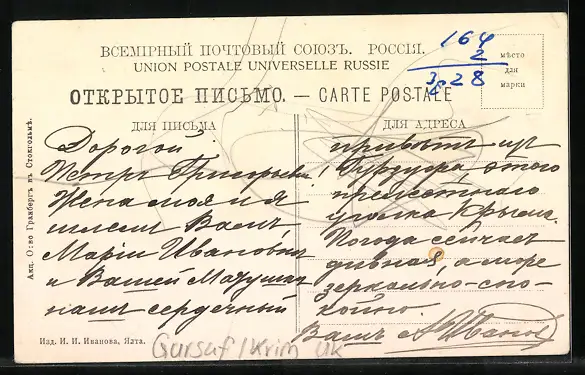 ВСЕМІРНЫЙ ПОЧТОВЫЙ СОЮЗЪ. РОССІЯ.
UNION POSTALE UNIVERSELLE RUSSIE
ОТКРЫТОЕ ПИСЬМО. — CARTE POSTALE
164
2
328
мѣсто
для
марки
ДЛЯ ПИСЬМА
Дорогой
Петръ Григорьевич!
Жена моя и я
шлемъ Вамъ,
Маріи Ивановнѣ
и Вашей Марушкѣ
нашъ сердечный
ДЛЯ АДРЕСА
привѣтъ изъ
Гурзуфа, этого
прелестнаго
уголка Крыма.
Погода сейчасъ
дивная, а море
зеркально-спо-
койно.
Вашъ
Акц. О-во Гранбергъ въ Стокгольмѣ.
Изд. И. И. Иванова, Ялта.
Gursuf / Krim uk